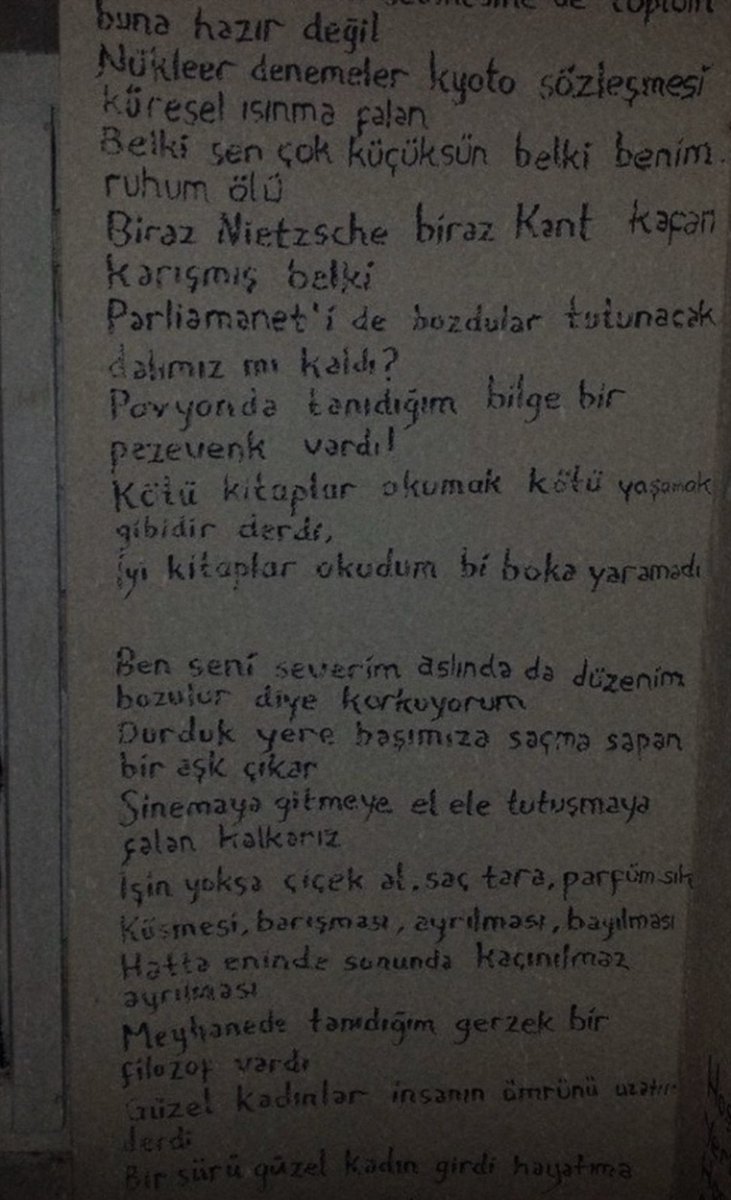 buna hazır değil
Nükleer denemeler kyoto sözleşmesi
küresel ısınma falan
Belki sen çok küçüksün belki benim
ruhum ölü
Biraz Nietzsche biraz Kant kafan
karışmış belki
Parliamanet'i de bozdular tutunacak
dalımız mı kaldı?
Pavyonda tanıdığım bilge bir
pezevenk vardı!
Kötü kitaplar okumak kötü yaşamak
gibidir derdi,
iyi kitaplar okudum bi boka yaramadı
Ben seni severim aslında da düzenim
bozulur diye korkuyorum
Durduk yere başımıza saçma sapan
bir aşk çıkar
Sinemaya gitmeye el ele tutuşmaya
falan kalkarız
İşin yoksa çiçek al. saç tara, parfüm sık
Küsmesi, barışması, ayrılması, bayılması
Hatta eninde sonunda kaçınılmaz
ayrılması
Meyhanede tanıdığım gerzek bir
filozof vardı
Güzel kadınlar insanın ömrünü uzatır
derdi
Bir sürü güzel kadın girdi hayatıma